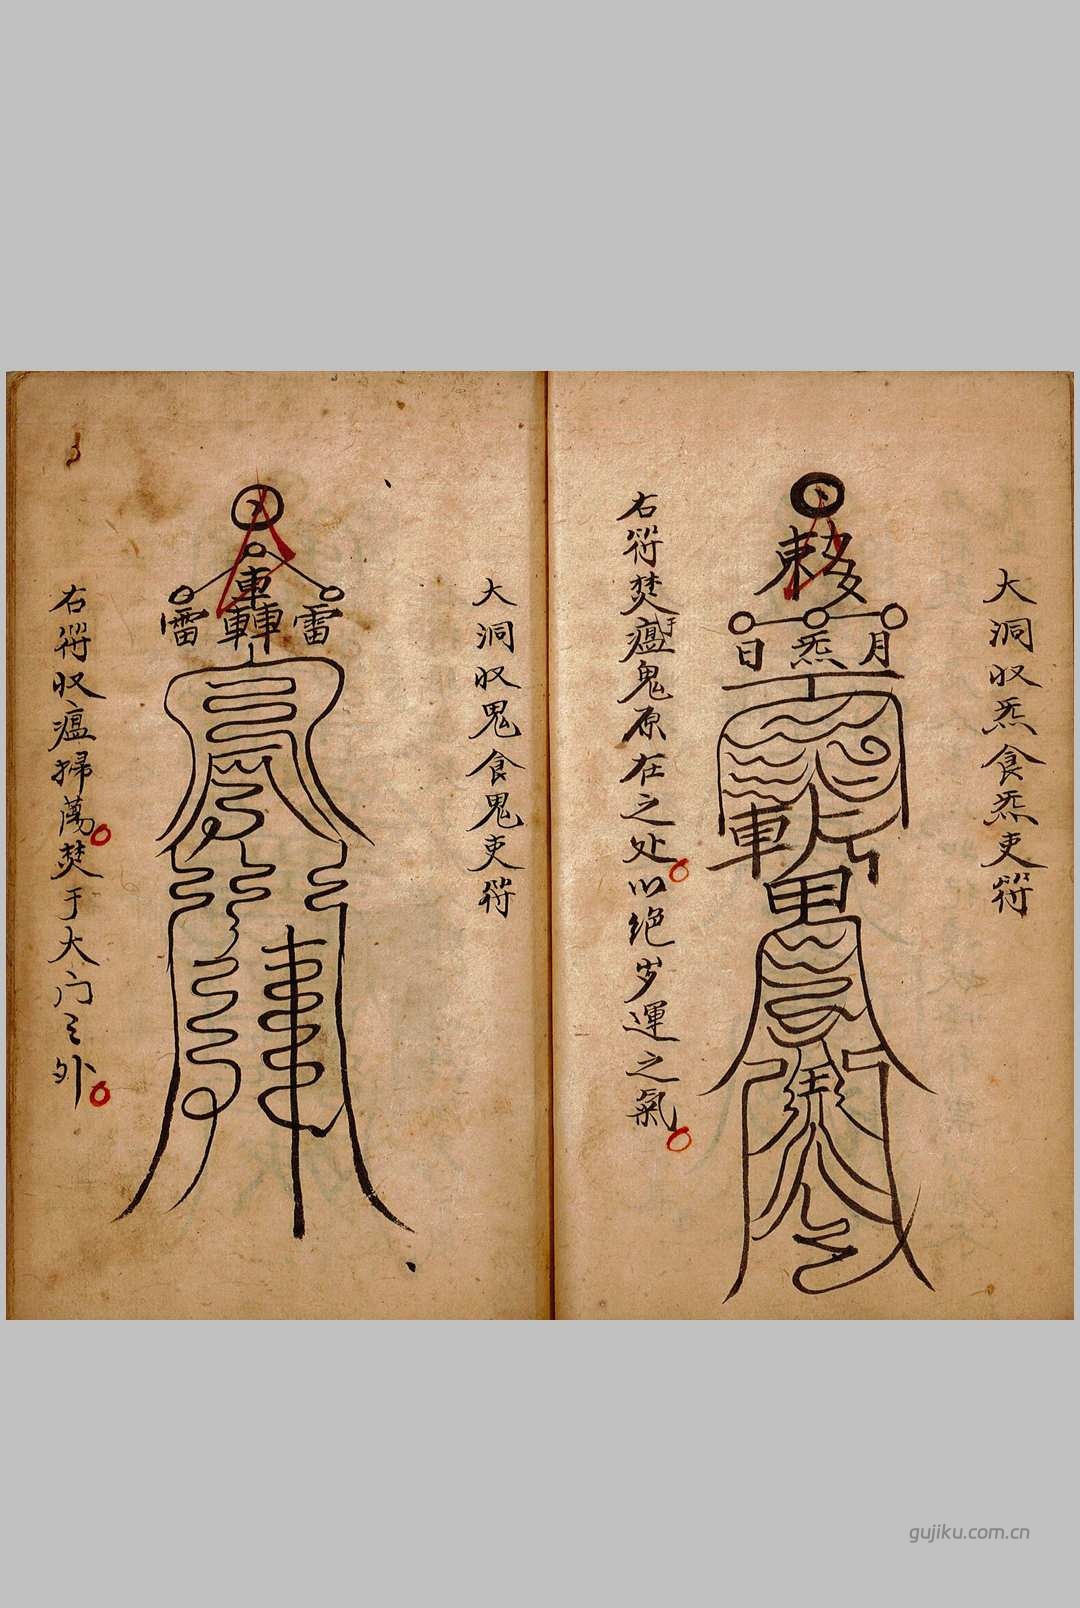 大洞収炁食炁吏符
敕
日 炁 月
斬
右符焚于瘟鬼原在之处以绝岁運之氣
大洞収鬼食鬼吏符
雷 轟 雷
右符収瘟掃蕩焚于大门之外
gujiku.com.cn